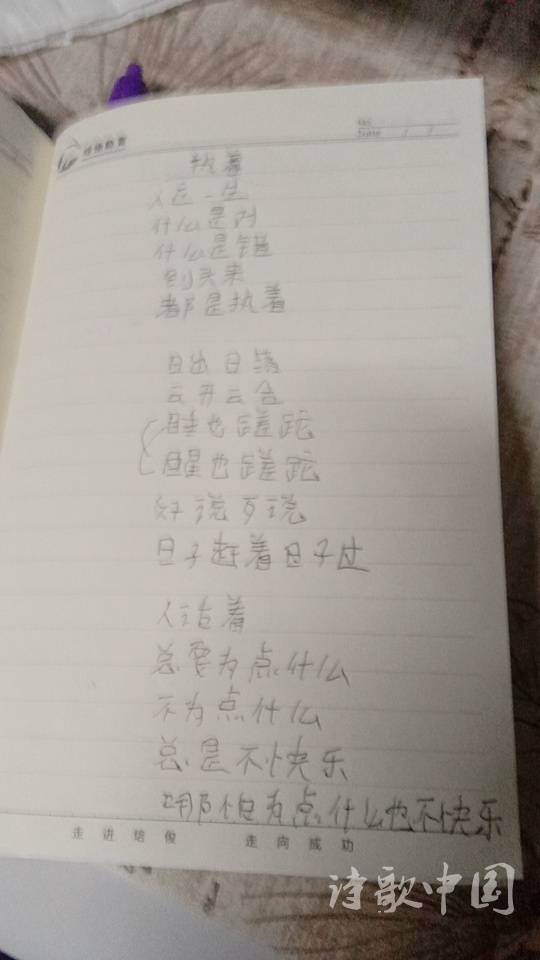 培俊教育
No.
Date / /
执着
人这一生
什么是对
什么是错
到头来
都是执着
日出日落
云开云合
睡也蹉跎
醒也蹉跎
好说歹说
日子赶着日子过
人活着
总要为点什么
不为点什么
总是不快乐
哪怕为点什么也不快乐
走进培俊 走向成功
诗歌中国